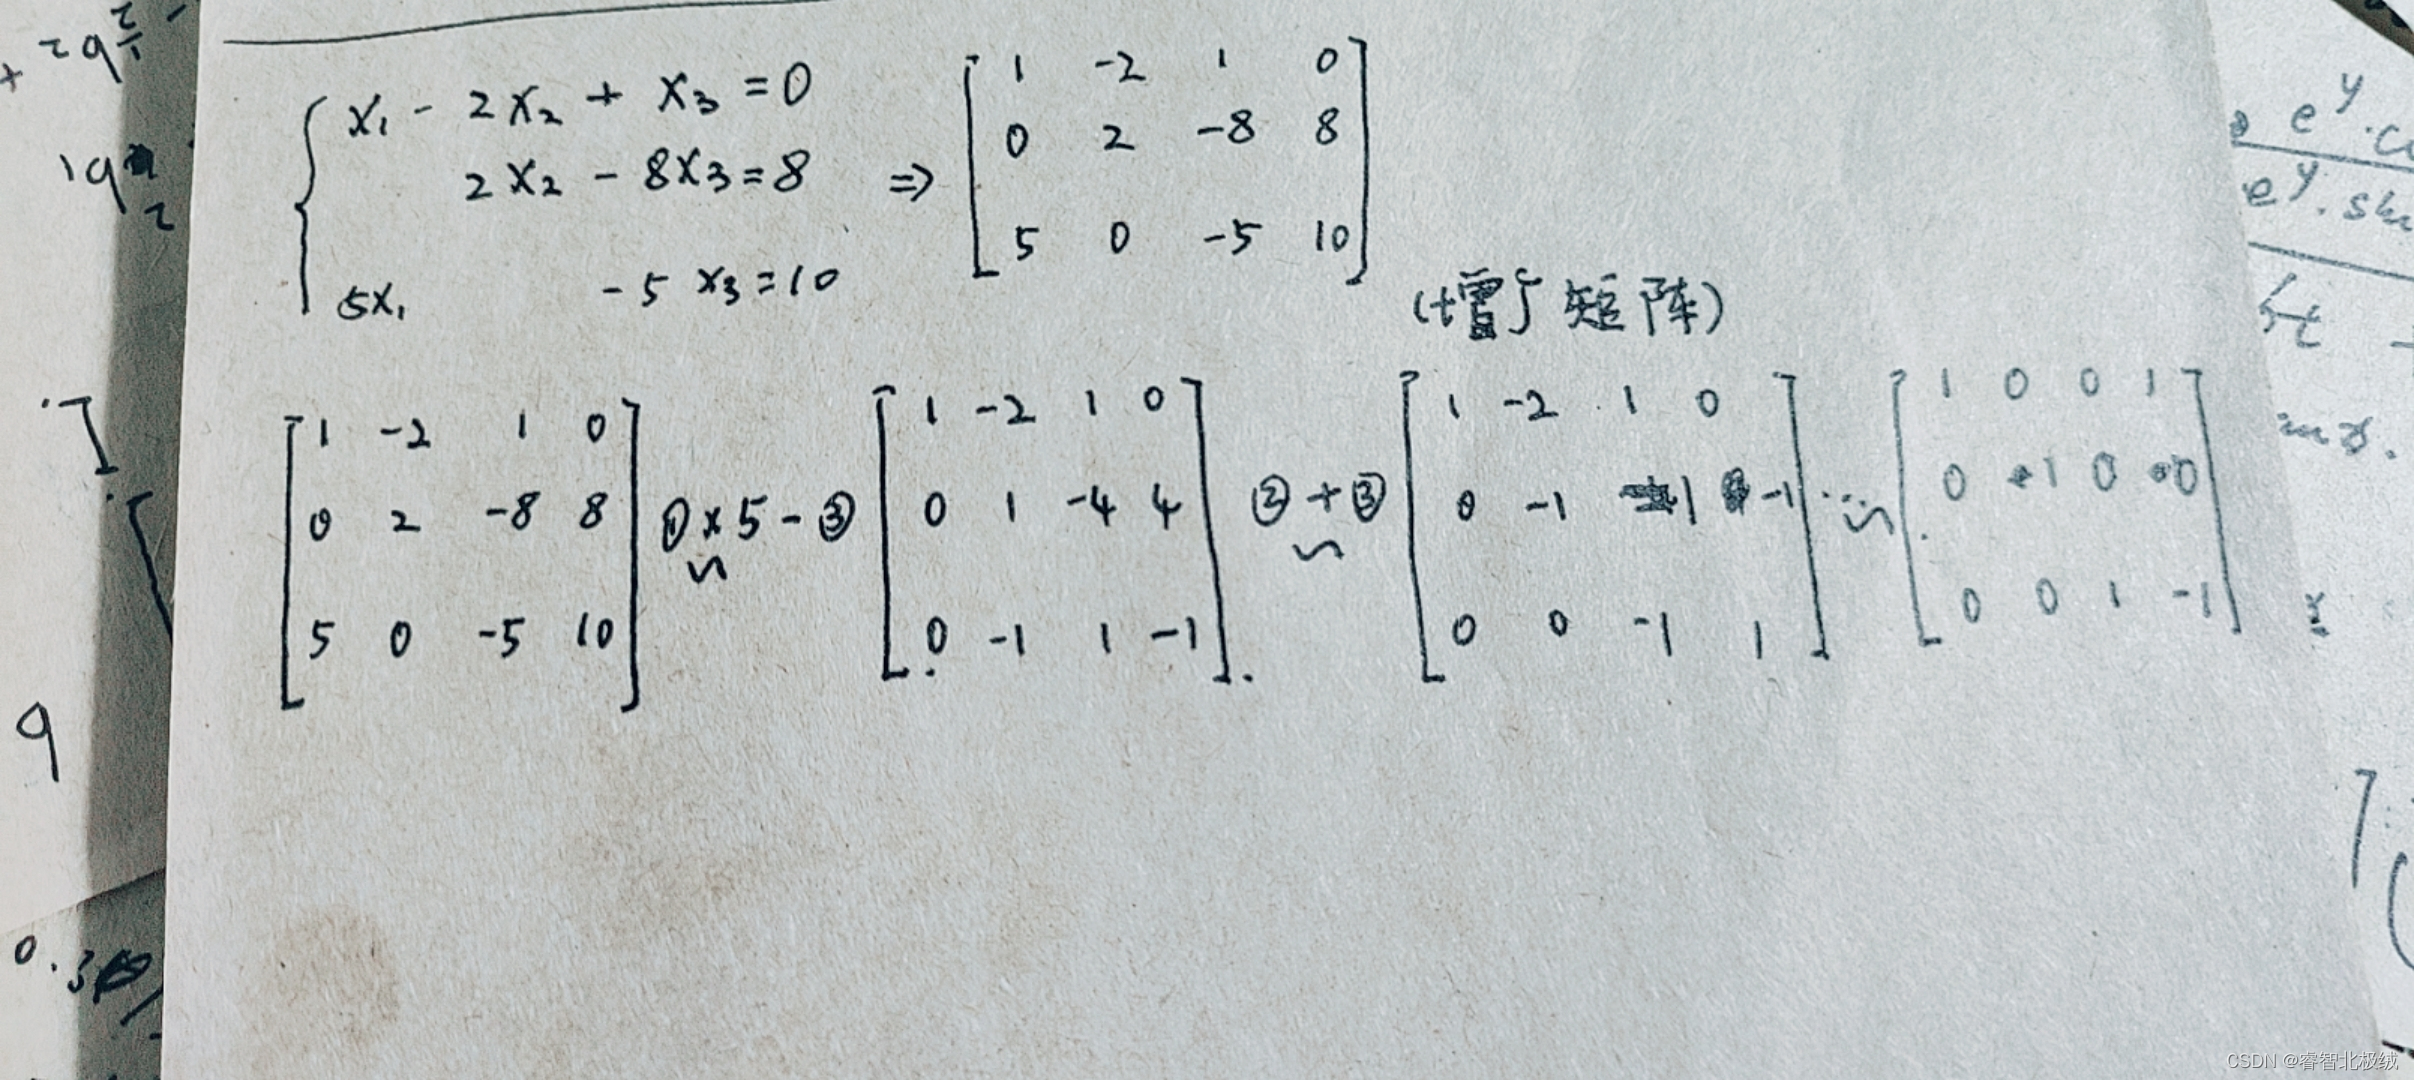 x₁ - 2x₂ + x₃ = 0
2x₂ - 8x₃ = 8
5x₁ - 5x₃ = 10
⇒
1 -2 1 0
0 2 -8 8
5 0 -5 10
(增广矩阵)
1 -2 1 0
0 2 -8 8
5 0 -5 10
①×5-③
~
1 -2 1 0
0 1 -4 4
0 -1 1 -1
②+③
~
1 -2 1 0
0 -1 1 -1
0 0 -1 1
... ~
1 0 0 1
0 1 0 0
0 0 1 -1
9
0.3
e^y.
e^y.
CSDN @睿智北极绒